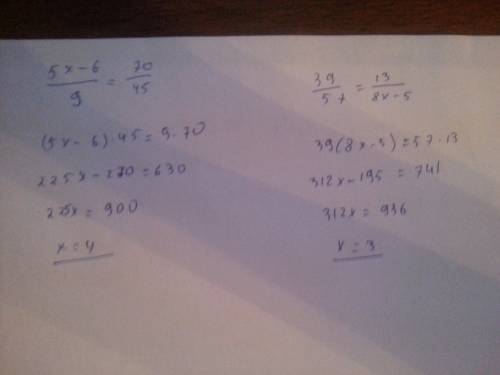 5x-6/9 = 70/45
(5x-6)·45=9·70
225x-270=630
225x=900
x=4
39/57 = 13/8x-5
39(8x-5)=57·13
312x-195=741
312x=936
x=3